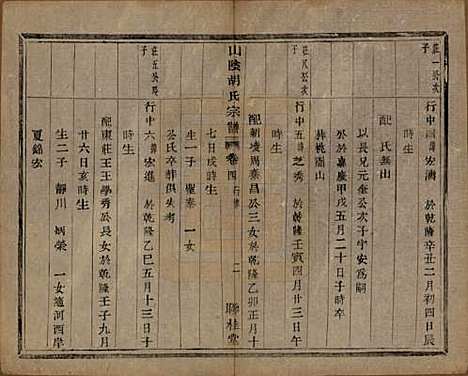 莊一公次子
行中四諱宏濟 於乾隆辛丑二月初四日辰
時生
配 氏無出
以長兄元奎公次子守安爲嗣
卒於嘉慶甲戌五月二十日子時
葬桃園山
莊八公次子
行中五諱之秀 於乾隆壬寅四月廿三日午
時生
配朝堎周棄昌公三女於乾隆乙卯正月十
山陰胡氏宗譜 卷四 二 聯桂堂
七日戌時生
生一子 聖泰 一女
公氏卒葬俱失考
莊五公次子
行中六諱宏進 於乾隆乙巳五月十三日子
時生
配東莊王王學秀公長女於乾隆壬子九月
廿六日亥時生
生二子 靜川 炳榮 一女適河西岸
夏錦宏